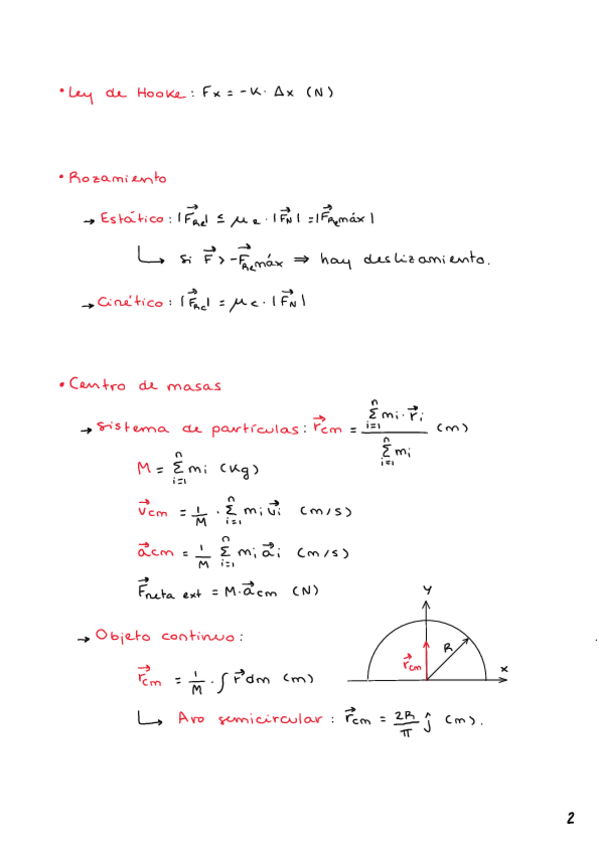 • Ley de Hooke: Fx = -K · Δx (N)
• Rozamiento
→ Estático: |F⃗Re| ≤ μe · |F⃗N| = |F⃗Re máx|
↳ Si F⃗ > -F⃗Re máx ⇒ hay deslizamiento.
→ Cinético: |F⃗Rc| = μc · |F⃗N|
• Centro de masas
→ Sistema de partículas: r⃗cm = Σ(i=1, n) mi · r⃗i / Σ(i=1, n) mi (m)
M = Σ(i=1, n) mi (Kg)
v⃗cm = 1/M · Σ(i=1, n) mi v⃗i (m/s)
a⃗cm = 1/M Σ(i=1, n) mi a⃗i (m/s)
F⃗neta ext = M · a⃗cm (N)
→ Objeto continuo:
r⃗cm = 1/M · ∫ r⃗ dm (m)
↳ Aro semicircular: r⃗cm = 2R/π ĵ (m).
y
R
r⃗cm
x
2